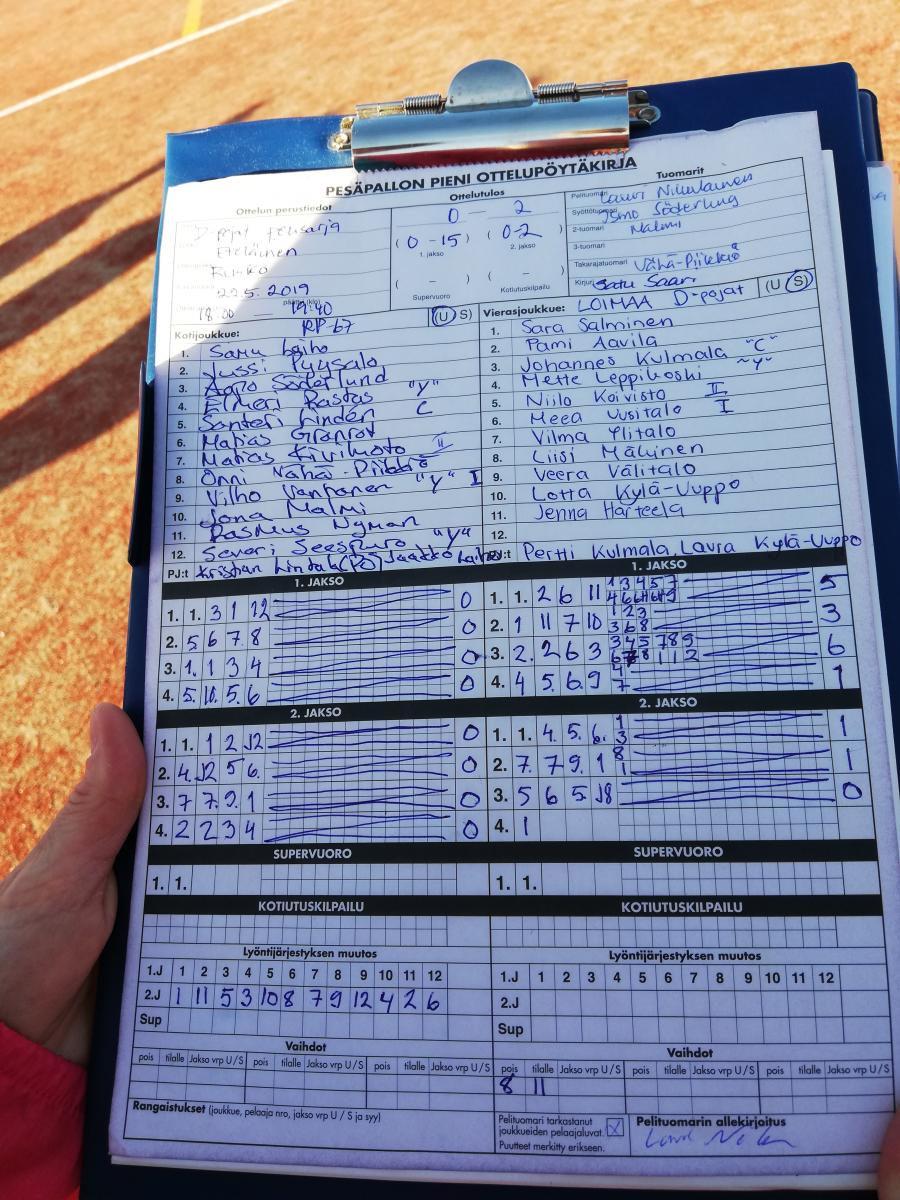 PESÄPALLON PIENI OTTELUPÖYTÄKIRJA
Ottelun perustiedot
D-pojat
Eteläinen
22.5.2019
18:00 — 19:40
Ottelutulos
0 – 2
( 0 -15 ) ( 0-2 )
1. jakso 2. jakso
( – ) ( – )
Supervuoro Kotiutuskilpailu
Tuomarit
Pelituomari Lauri Nikulainen
Syöttötuomari Ismo Söderlung
2-tuomari Nalmi
3-tuomari
Takarajatuomari Vähä-Piikkiö
Kirjuri Satu Saari
Kotijoukkue: RP-67 (U S)
1. Samu Laiho
2. Jussi Pyysalo
3. Aapo Söderlund
4. Elmeri Rastas "Y"
5. Santeri Lindén C
6. Matias Granrot
7. Matias Kivikoto II
8. Onni Vähä-Piikkiö
9. Vilho Vanhanen "Y" I
10. Jona Malmi
11. Rasmus Nyman
12. Severi Seespuro "Y"
PJ:t Kristian Lindah (PJ) Jaakko Laiho
Vierasjoukkue: LOIMAA D-pojat (U S)
1. Sara Salminen
2. Pami Aavila
3. Johannes Kulmala "C"
4. Mette Leppikoski "Y"
5. Niilo Koivisto II
6. Meea Uusitalo I
7. Vilma Ylitalo
8. Liisi Mäkinen
9. Veera Välitalo
10. Lotta Kylä-Uuppo
11. Jenna Harteela
12.
PJ:t Pertti Kulmala, Laura Kylä-Uuppo
1. JAKSO
1. 1. 3 1 12 0
2. 5 6 7 8 0
3. 1. 1 3 4 0
4. 5. 10. 5. 6 0
2. JAKSO
1. 1. 1 2 12 0
2. 4. 12 5 6. 0
3. 7 7. 9. 1 0
4. 2 2 3 4 0
SUPERVUORO
1. 1.
KOTIUTUSKILPAILU
Lyöntijärjestyksen muutos
1.J 1 2 3 4 5 6 7 8 9 10 11 12
2.J 1 11 5 3 10 8 7 9 12 4 2 6
Sup
Vaihdot
pois tilalle Jakso vrp U/S pois tilalle Jakso vrp U/S pois tilalle Jakso vrp U/S
Rangaistukset (joukkue, pelaaja nro, jakso vrp U / S ja syy)
1. JAKSO
1. 1. 2 6 11 1 3 4 5 7 5
2. 1 11 7 10 1 2 3 3
3 6 8
3. 2. 2 6 3 3 4 5 7 8 9 6
4. 4 5. 6. 9 4 1
7
2. JAKSO
1. 1. 4. 5. 6. 1 1
3
2. 7. 7 9. 1 8 1
1
3. 5 6 5 18 0
4. 1
SUPERVUORO
1. 1.
KOTIUTUSKILPAILU
Lyöntijärjestyksen muutos
1.J 1 2 3 4 5 6 7 8 9 10 11 12
2.J
Sup
Vaihdot
pois tilalle Jakso vrp U/S pois tilalle Jakso vrp U/S pois tilalle Jakso vrp U/S
8 11
Pelituomari tarkastanut
joukkueiden pelaajaluvat. X
Puutteet merkitty erikseen.
Pelituomarin allekirjoitus